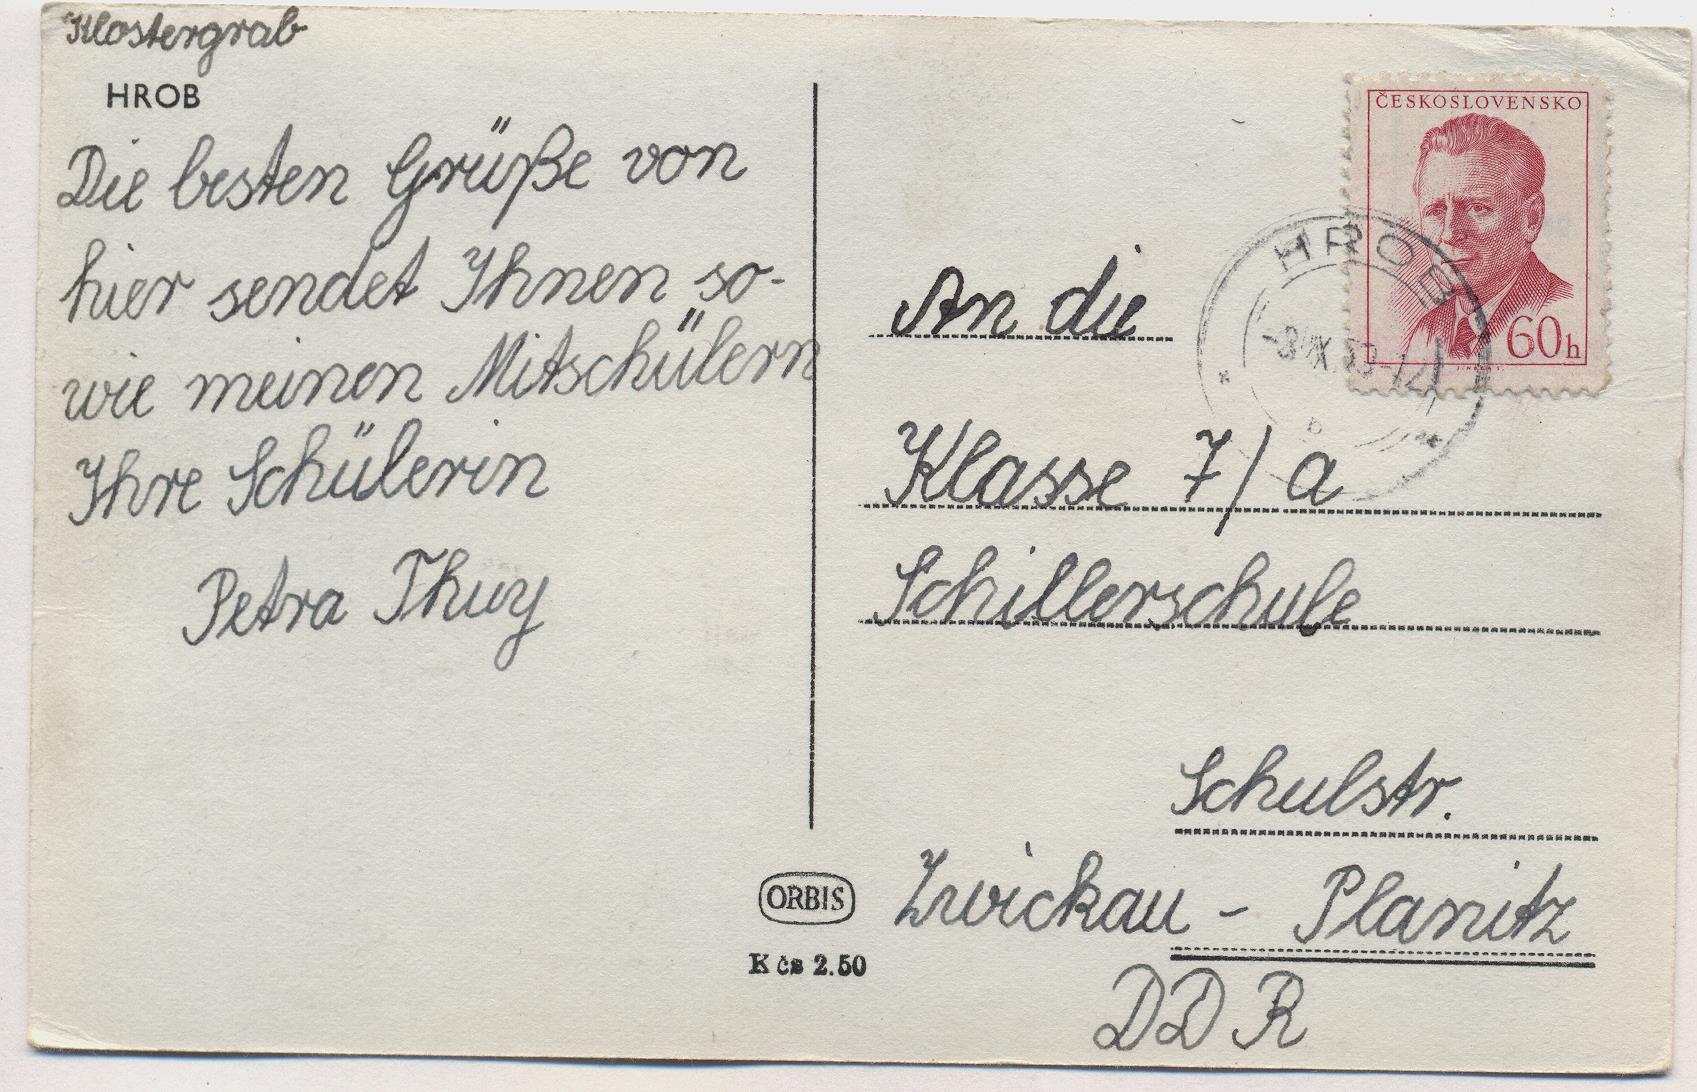 Klostergrab
HROB
Die besten Grüße von
hier sendet Ihnen so-
wie meinen Mitschülern
Ihre Schülerin
Petra Thuy
ČESKOSLOVENSKO
60h
HROB
An die
Klasse 7/a
Schillerschule
Schulstr.
Zwickau - Planitz
DDR
ORBIS
Kčs 2.50